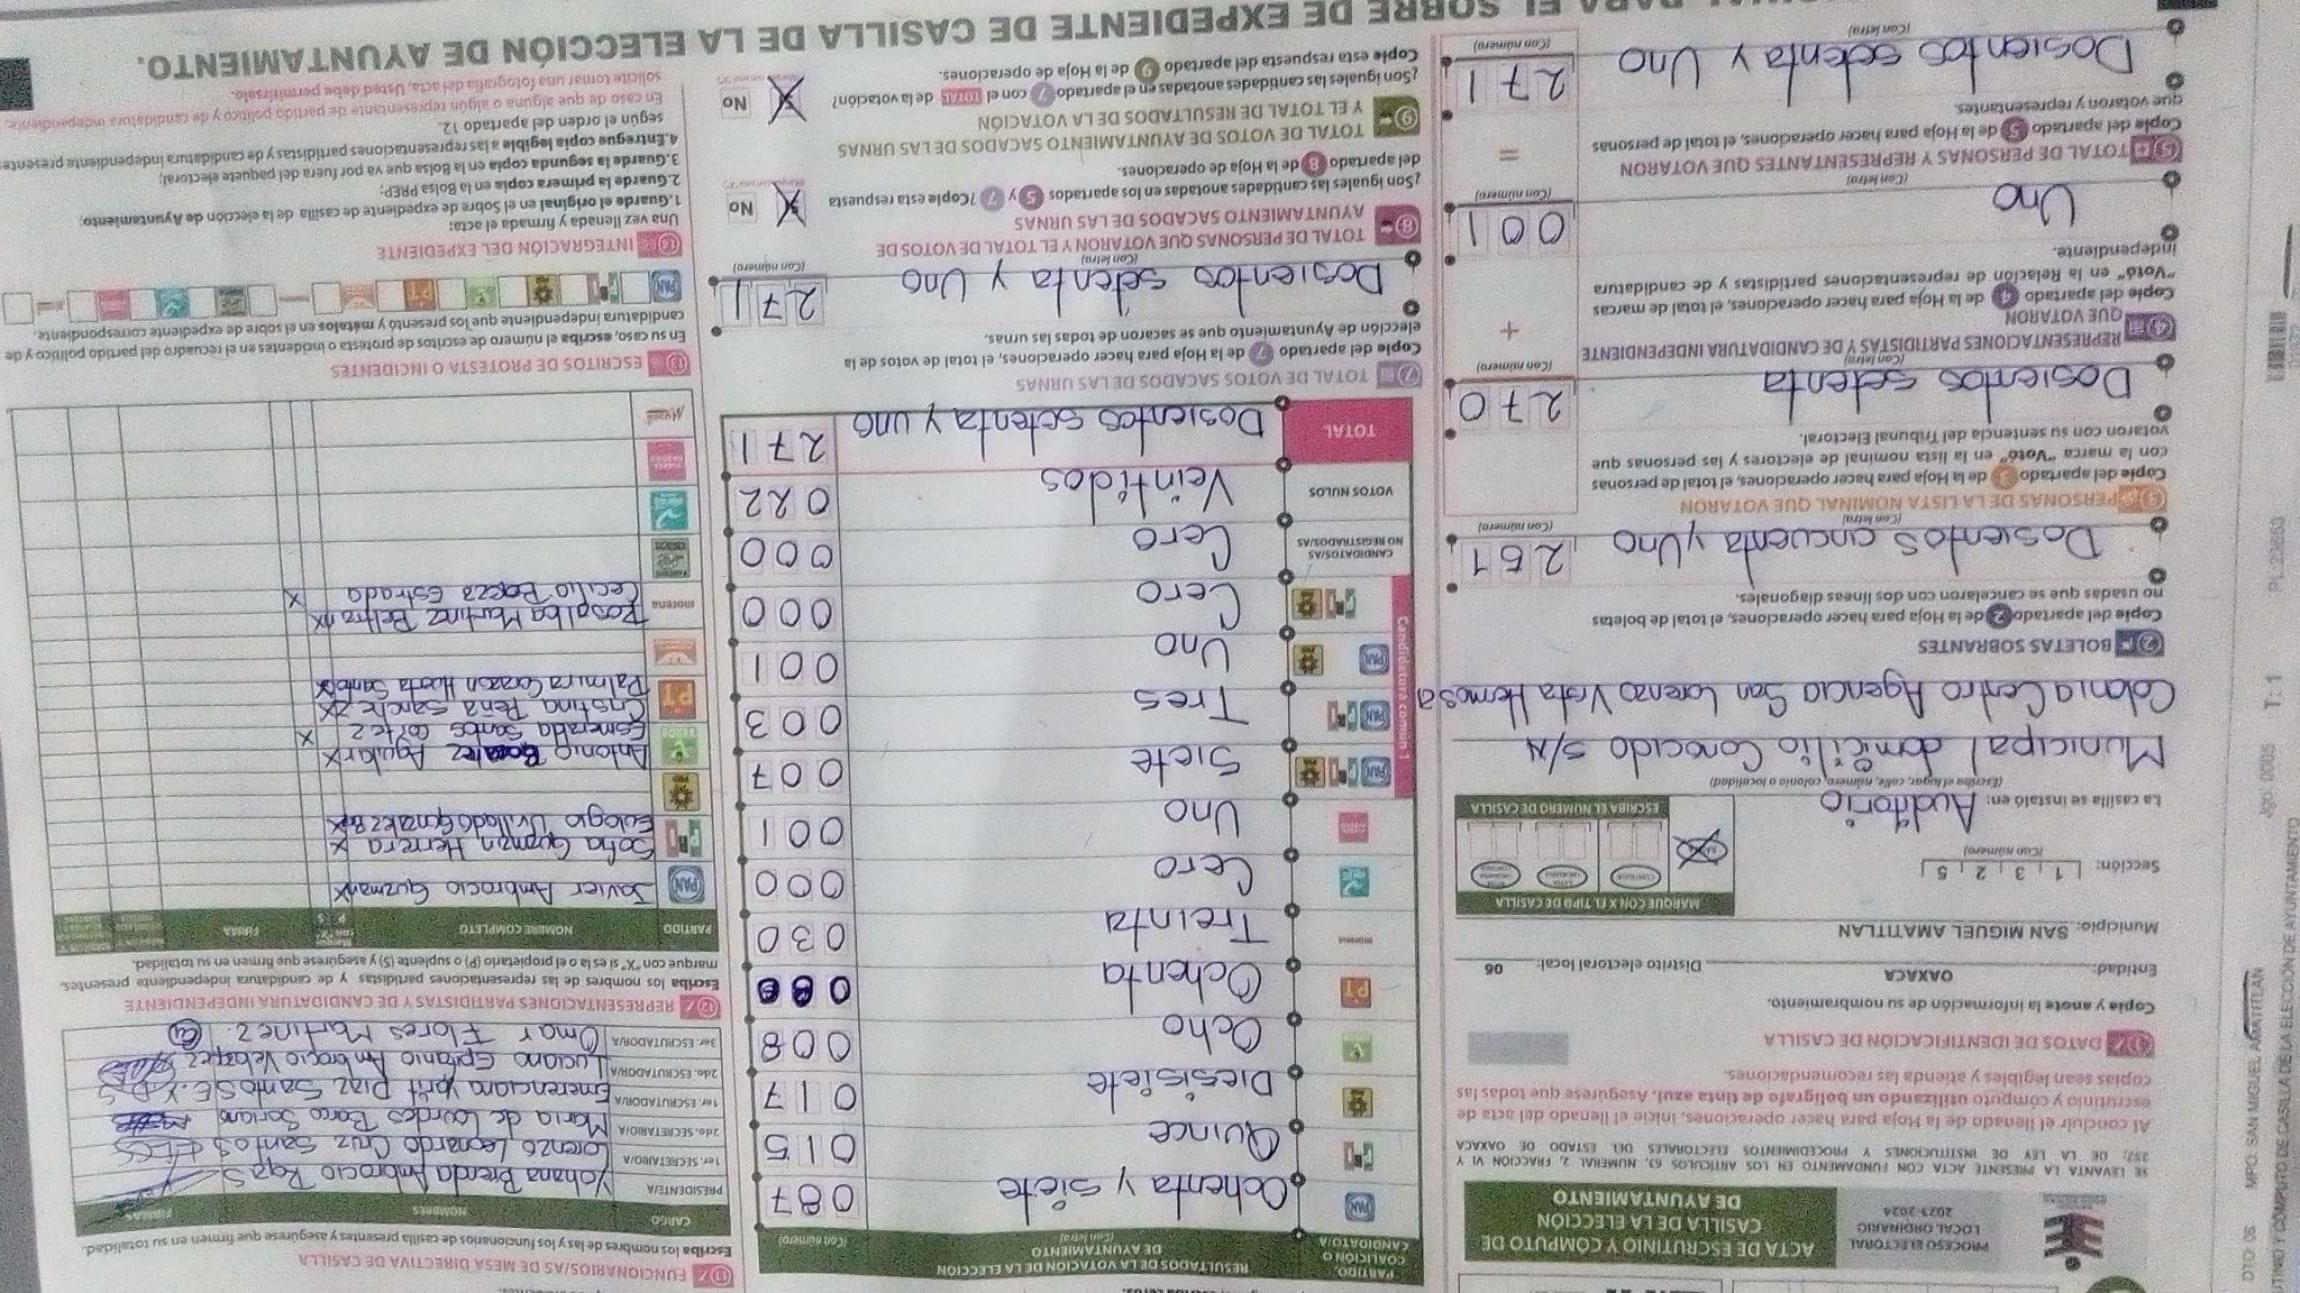 PROCESO ELECTORAL
LOCAL ORDINARIO
2023-2024
ACTA DE ESCRUTINIO Y CÓMPUTO DE
CASILLA DE LA ELECCIÓN
DE AYUNTAMIENTO
SE LEVANTA LA PRESENTE ACTA CON FUNDAMENTO EN LOS ARTÍCULOS 63, NUMERAL 2, FRACCIÓN VI Y
DE LA LEY DE INSTITUCIONES Y PROCEDIMIENTOS ELECTORALES DEL ESTADO DE OAXACA
Al concluir el llenado de la Hoja para hacer operaciones, inicie el llenado del acta de
escrutinio y cómputo utilizando un bolígrafo de tinta azul. Asegúrese que todas las
copias sean legibles y atienda las recomendaciones.
1 DATOS DE IDENTIFICACIÓN DE CASILLA
Copie y anote la información de su nombramiento.
Entidad: OAXACA Distrito electoral local: 06
Municipio: SAN MIGUEL AMATITLAN
Sección: 1 3 2 5
(Con número)
MARQUE CON X EL TIPO DE CASILLA
ESCRIBA EL NÚMERO DE CASILLA
La casilla se instaló en: Auditorio
(Escriba el lugar, calle, número, colonia o localidad)
Municipal domicilio Conocido S/N
Colonia Centro Agencia San Lorenzo Vista Hermosa
2 BOLETAS SOBRANTES
Copie del apartado 2 de la Hoja para hacer operaciones, el total de boletas
no usadas que se cancelaron con dos líneas diagonales.
Dosientos cincuenta y Uno 251
(Con letra) (Con número)
3 PERSONAS DE LA LISTA NOMINAL QUE VOTARON
Copie del apartado 3 de la Hoja para hacer operaciones, el total de personas
con la marca "Votó" en la lista nominal de electores y las personas que
votaron con su sentencia del Tribunal Electoral.
Dosientos setenta 270
(Con letra) (Con número)
4 REPRESENTACIONES PARTIDISTAS Y DE CANDIDATURA INDEPENDIENTE
QUE VOTARON
+
Copie del apartado 4 de la Hoja para hacer operaciones, el total de marcas
"Votó" en la Relación de representaciones partidistas y de candidatura
independiente.
Uno 001
(Con letra) (Con número)
5 TOTAL DE PERSONAS Y REPRESENTANTES QUE VOTARON
=
Copie del apartado 5 de la Hoja para hacer operaciones, el total de personas
que votaron y representantes.
Dosientos setenta y Uno 271
(Con letra) (Con número)
PARTIDO, COALICIÓN O CANDIDATO/A
RESULTADOS DE LA VOTACIÓN DE LA ELECCIÓN
DE AYUNTAMIENTO
(Con letra) (Con número)
PAN Ochenta y siete 087
PRI Quince 015
PRD Diesisiete 017
Ocho 008
PT Ochenta 0
morena Treinta 030
Cero 000
Uno 001
Candidatura común 1
PAN PRI PRD Siete 007
PAN PRI Tres 003
PAN PRD Uno 001
PRI PRD Cero 000
CANDIDATOS/AS NO REGISTRADOS/AS Cero 000
VOTOS NULOS Veintidos 022
TOTAL Dosientos setenta y uno 271
7 TOTAL DE VOTOS SACADOS DE LAS URNAS
Copie del apartado 7 de la Hoja para hacer operaciones, el total de votos de la
elección de Ayuntamiento que se sacaron de todas las urnas.
Dosientos setenta y Uno 271
(Con letra) (Con número)
8 TOTAL DE PERSONAS QUE VOTARON Y EL TOTAL DE VOTOS DE
AYUNTAMIENTO SACADOS DE LAS URNAS
¿Son iguales las cantidades anotadas en los apartados 5 y 7? Copie esta respuesta
del apartado 8 de la Hoja de operaciones.
X No
9 TOTAL DE VOTOS DE AYUNTAMIENTO SACADOS DE LAS URNAS
Y EL TOTAL DE RESULTADOS DE LA VOTACIÓN
¿Son iguales las cantidades anotadas en el apartado 7 con el TOTAL de la votación?
Copie esta respuesta del apartado 9 de la Hoja de operaciones.
X No
11 FUNCIONARIOS/AS DE MESA DIRECTIVA DE CASILLA
Escriba los nombres de las y los funcionarios de casilla presentes y asegúrese que firmen en su totalidad.
CARGO NOMBRES FIRMAS
PRESIDENTE/A Yohana Brenda Ambrocio Rojas
1er. SECRETARIO/A Lorenzo Leonardo Cruz Santos
2do. SECRETARIO/A Maria de Lourdes Barco Soriano
1er. ESCRUTADOR/A Emerenciana Yorit Diaz Santos E.Y.D.S
2do. ESCRUTADOR/A Luciano Epifanio Ambrocio Velazquez
3er. ESCRUTADOR/A Omar Flores Martinez
12 REPRESENTACIONES PARTIDISTAS Y DE CANDIDATURA INDEPENDIENTE
Escriba los nombres de las representaciones partidistas y de candidatura independiente presentes,
marque con "X" si es la o el propietario (P) o suplente (S) y asegúrese que firmen en su totalidad.
PARTIDO NOMBRE COMPLETO FIRMA
PAN Javier Ambrocio Guzman X
PRI Sofia Guzman Herrera X
Eulogio X
PRD
VERDE Antonio Aguilar X
Esmeralda Santos Cortez X
PT Cristina Peña Sanchez X
Palmira Corazon Huerta Santos X
morena Rosalba Martinez Beltran X
Cecilio Estrada X
13 ESCRITOS DE PROTESTA O INCIDENTES
En su caso, escriba el número de escritos de protesta o incidentes en el recuadro del partido político y de
candidatura independiente que los presentó y métalos en el sobre de expediente correspondiente.
14 INTEGRACIÓN DEL EXPEDIENTE
Una vez llenada y firmada el acta:
1. Guarde el original en el Sobre de expediente de casilla de la elección de Ayuntamiento;
2. Guarde la primera copia en la Bolsa PREP;
3. Guarde la segunda copia en la Bolsa que va por fuera del paquete electoral;
4. Entregue copia legible a las representaciones partidistas y de candidatura independiente presentes
según el orden del apartado 12.
En caso de que alguna o algún representante de partido político y de candidatura independiente,
solicite tomar una fotografía del acta, Usted debe permitírselo.
PARA EL SOBRE DE EXPEDIENTE DE CASILLA DE LA ELECCIÓN DE AYUNTAMIENTO.
DTO 06 MPO: SAN MIGUEL AMATITLAN T: 1
CÓMPUTO DE CASILLA DE LA ELECCIÓN DE AYUNTAMIENTO